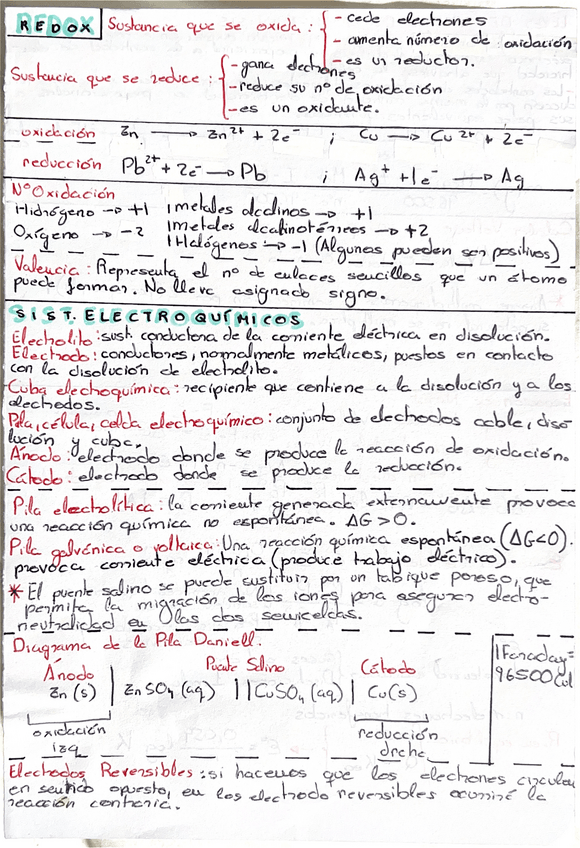 REDOX Sustancia que se oxida: - cede electrones
- aumenta número de oxidación
- es un reductor.
Sustancia que se reduce: - gana electrones
- reduce su nº de oxidación
- es un oxidante.
oxidación Zn → Zn²⁺ + 2e⁻ ; Cu → Cu²⁺ + 2e⁻
reducción Pb²⁺ + 2e⁻ → Pb ; Ag⁺ + 1e⁻ → Ag
Nº Oxidación
Hidrógeno → +1 | metales alcalinos → +1
Oxígeno → -2 | metales alcalinotérreos → +2
| Halógenos → -1 (Algunos pueden ser positivos)
Valencia: Representa el nº de enlaces sencillos que un átomo
puede formar. No lleva asignado signo.
SIST. ELECTROQUÍMICOS
Electrolito: sust. conductora de la corriente eléctrica en disolución.
Electrodo: conductores, normalmente metálicos, puestos en contacto
con la disolución de electrolito.
Cuba electroquímica: recipiente que contiene a la disolución y a los
electrodos.
Pila, célula, celda electroquímico: conjunto de electrodos cable, diso
lución y cuba.
Ánodo: electrodo donde se produce la reacción de oxidación.
Cátodo: electrodo donde se produce la reducción.
Pila electrolítica: la corriente generada externamente provoca
una reacción química no espontánea. ΔG > 0.
Pila galvánica o voltaica: Una reacción química espontánea (ΔG<0).
provoca corriente eléctrica (produce trabajo eléctrico).
* El puente salino se puede sustituir por un tabique poroso, que
permita la migración de los iones para asegurar electro-
neutralidad en las dos semiceldas.
Diagrama de la Pila Daniell. | 1 Faraday =
96500 Cul
Ánodo Puente Salino Cátodo
Zn (s) | ZnSO₄ (aq) || CuSO₄ (aq) | Cu(s)
oxidación reducción
izq drcha
Electrodos Reversibles: si hacemos que los electrones circulen
en sentido opuesto, en los electrodo reversibles ocurriré la
reacción contraria.